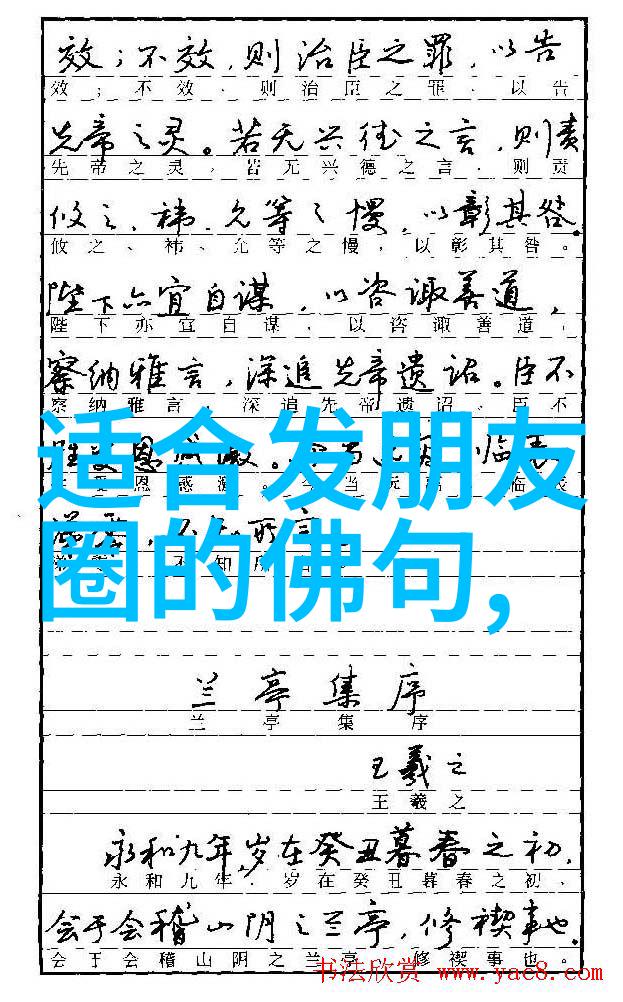 效；不效，则治臣之罪，以告
效；不效、则治臣之罪、以告
先帝之灵。若无兴德之言，则责
先帝之灵，若无兴德之言、则责
攸之、祎、允等之慢，以彰其咎。
攸之、祎、允等之慢，以彰其咎。
陛下亦宜自谋，以咨诹善道，
陛下亦宜自谋，以咨诹善道，
察纳雅言，深追先帝遗诏。臣不
察纳雅言，深追先帝遗诏。臣不
恩感激。
恩感激。今当 临表
不知所
适合发朋友
圈的佛句,
兰亭集序
兰亭集序
王羲之
王羲之
永和九年，岁在癸丑暮春之初，
永和九年．岁在癸丑暮春之初、
会于会稽山阴之兰亭，修禊事也。
会于会稽山阴之兰亭 修禊事也。
书法欣赏 www.yac8.com